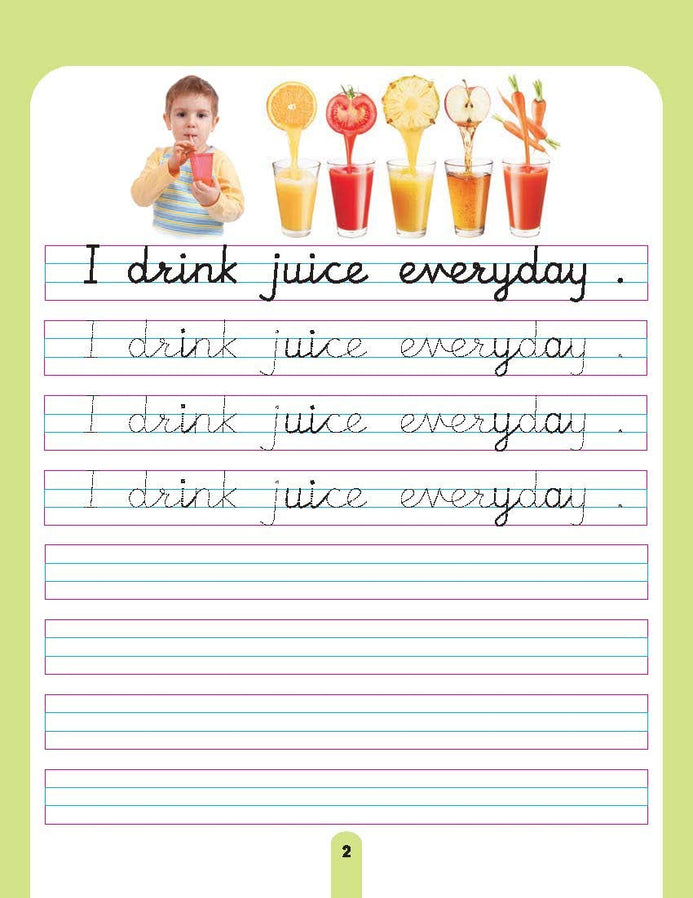 I drink juice everyday .
I drink juice everyday .
I drink juice everyday .
I drink juice everyday .
2